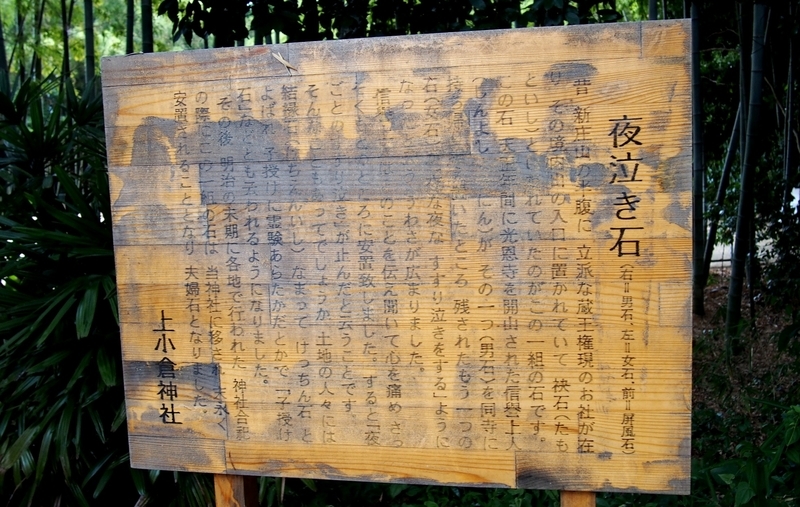 夜泣き石(右=男石、左=女石、前=屏風石)
昔 新庄山の中腹に 立派な蔵王権現のお社が在
り その登 の入口に置かれていて 袂石(たも
といし)と れていたのがこの一組の石です。
この石 天 年間に光恩寺を開山された信誉上人
( んよし にん)が その一つ(男石)を同寺に
持 いたところ 残されたもう一つの
石(女石) 夜な夜な すすり泣きをする」ように
なっ うわさが広まりました。
信 のことを伝え聞いて心を痛め さっ
そく ころに安置致しました。 すると「夜
ごとの 泣き」が止んだと云うことです。
そんな ってでしょうか 土地の人々には
結縁石( ちえんいし) なまって けっちん石 と
よばれ 子授けに霊験あらたかだとかで「子授け
石」などとも云われるようになりました。
その後 明治の末期に各地で行われた 神社合祀
の際にこの一組の石は 当神社に移され 末永く
安置される」こととなり 夫婦石となりました。
上小倉神社